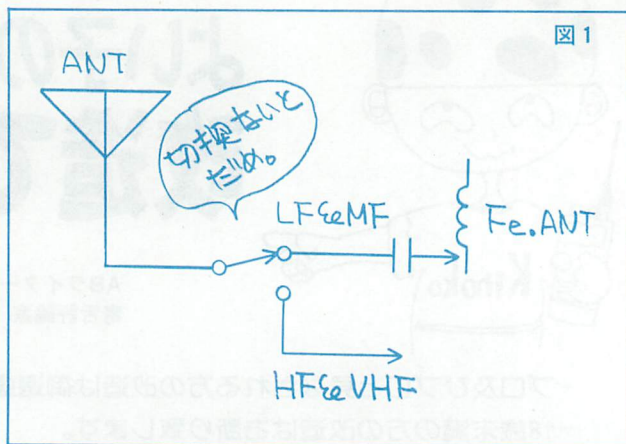 図1
ANT
切換ないと
だめ。
LF&MF
Fe.ANT
HF&VHF